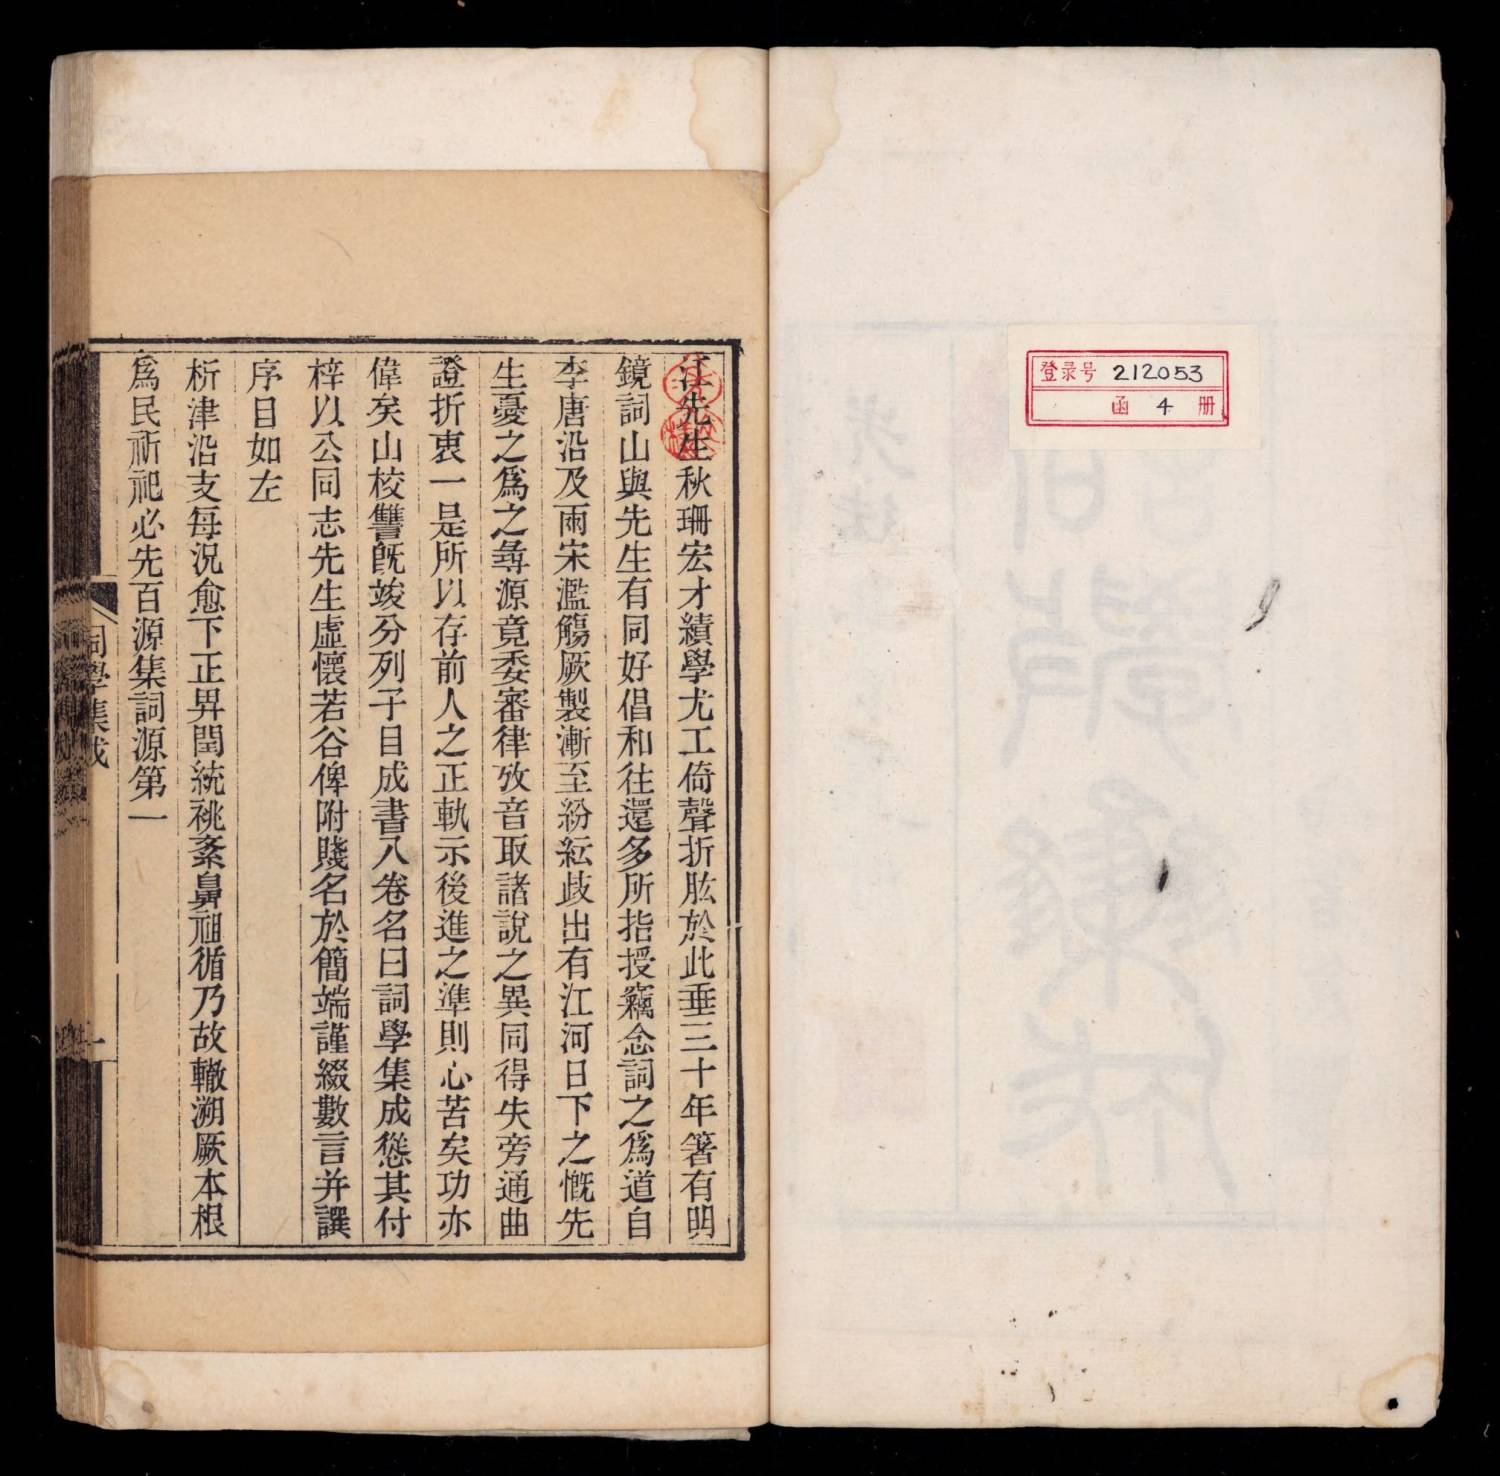 登录号 212053
函 4 册
江先生秋珊宏才績學尤工倚聲折肱於此垂三十年箸有明
鏡詞山與先生有同好倡和往還多所指授竊念詞之爲道自
李唐沿及兩宋濫觴厥製漸至紛紜歧出有江河日下之慨先
生憂之爲之尋源竟委審律攷音取諸說之異同得失旁通曲
證折衷一是所以存前人之正軌示後進之準則心苦矣功亦
偉矣山校讐旣竣分列子目成書八卷名曰詞學集成慫其付
梓以公同志先生虛懷若谷俾附賤名於簡端謹綴數言并譔
序目如左
析津沿支每況愈下正昇閏統祧紊鼻祖循乃故轍溯厥本根
爲民祈祀必先百源集詞源第一
詞學集成
一